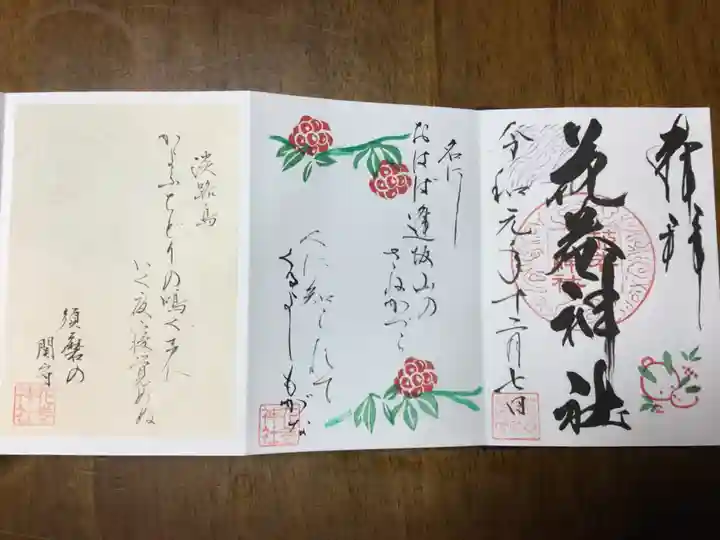 奉拝
花菴神社
令和元年十二月七日
名にし
おはば逢坂山の
さねかづら
人に知られて
くるよしもがな
淡路島
かよふちどりの鳴く声に
いく夜寝覚めぬ
須磨の
関守